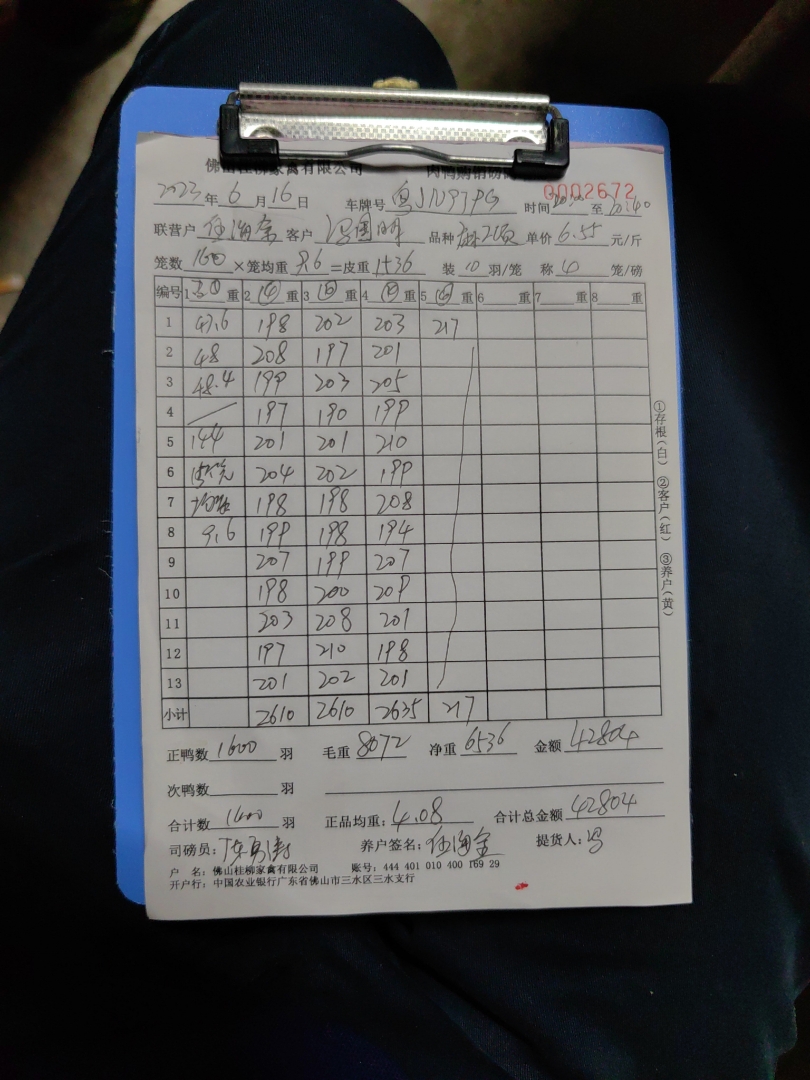 佛山桂柳家禽有限公司 肉鸭购销磅
0002672
2023年6月16日 车牌号 粤JN97PG 时间 至
联营户 客户 品种 单价 6.55 元/斤
笼数 160 ×笼均重 9.6 =皮重 1536 装 10 羽/笼 称 4 笼/磅
编号 1 重 2 ④ 重 3 重 4 重 5 重 6 重 7 重 8 重
1 47.6 198 202 203 217
2 48 208 197 201
3 48.4 199 203 205
4 197 190 199
5 144 201 201 210
6 204 202 199
7 198 198 208
8 9.6 199 198 194
9 207 199 207
10 198 200 209
11 203 208 201
12 197 210 198
13 201 202 201
小计 2610 2610 2635 217
正鸭数 1600 羽 毛重 8072 净重 6536 金额 42804
次鸭数 羽
合计数 1600 羽 正品均重: 4.08 合计总金额 42804
司磅员: 养户签名: 提货人: 冯
户 名: 佛山桂柳家禽有限公司 账号: 444 401 010 400 169 29
开户行: 中国农业银行广东省佛山市三水区三水支行
①存根(白) ②客户(红) ③养户(黄)